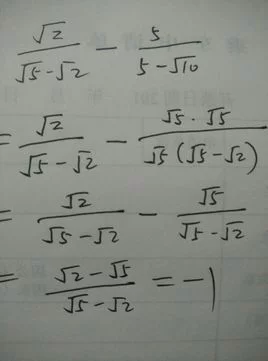 √2/(√5-√2) - 5/(5-√10)
= √2/(√5-√2) - √5·√5/(√5(√5-√2))
= √2/(√5-√2) - √5/(√5-√2)
= (√2-√5)/(√5-√2) = -1